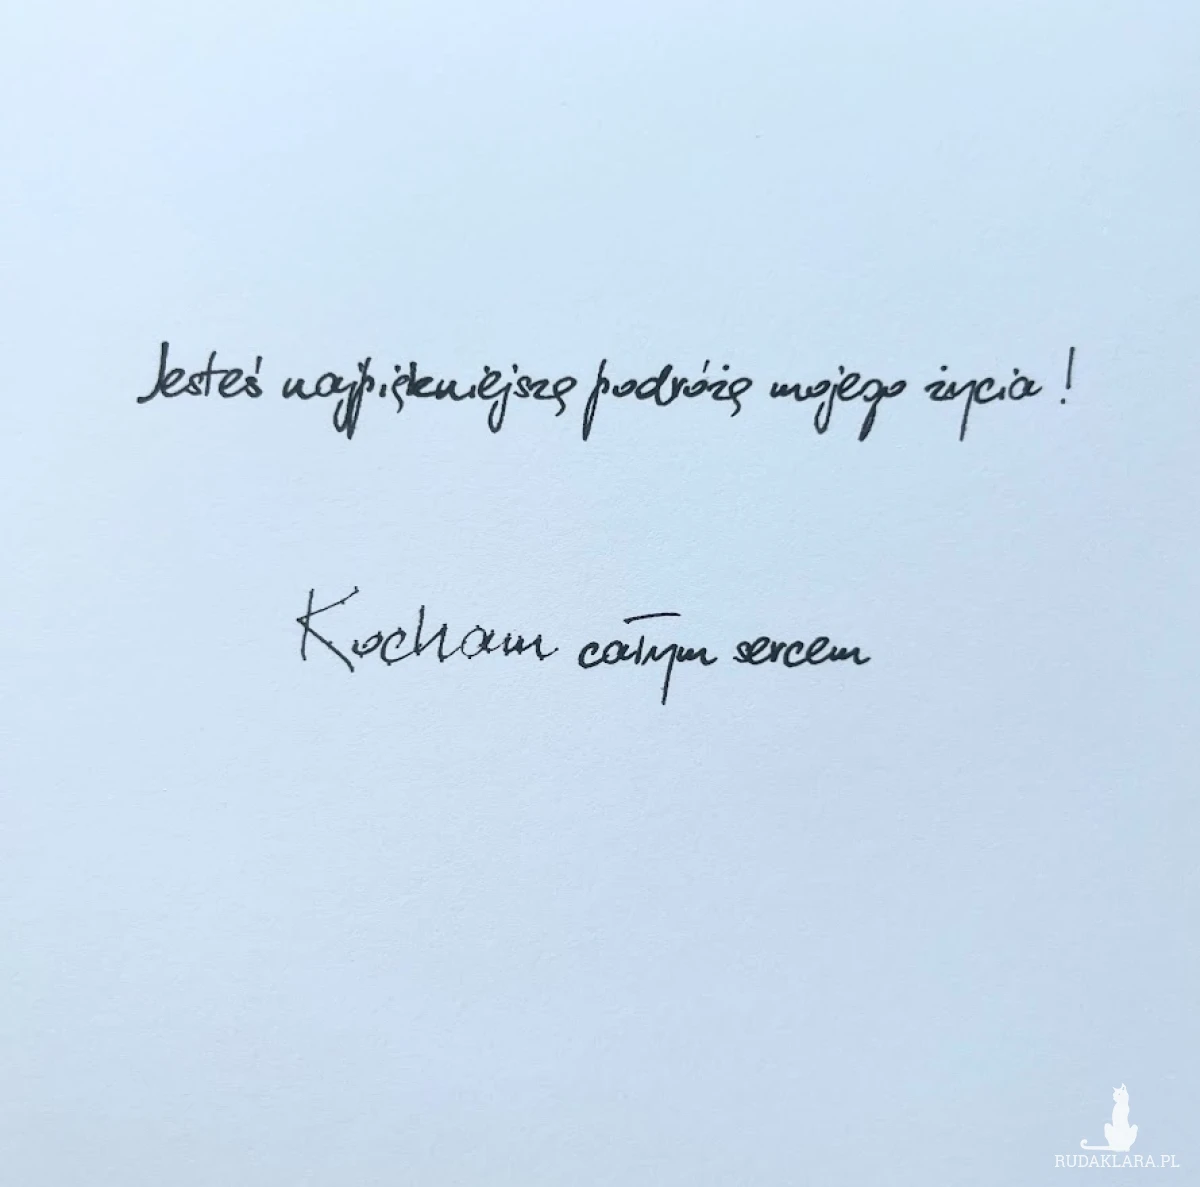 Jesteś najpiękniejszą podróżą mojego życia!
Kocham całym sercem
RUDAKLARA.PL